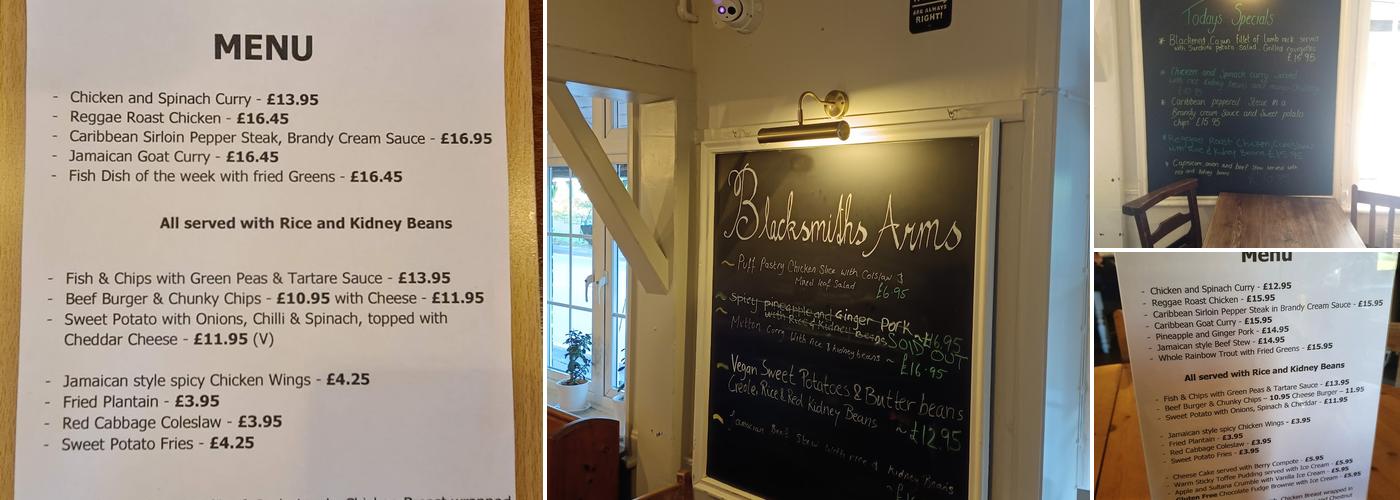 MENU
- Chicken and Spinach Curry - £13.95
- Reggae Roast Chicken - £16.45
- Caribbean Sirloin Pepper Steak, Brandy Cream Sauce - £16.95
- Jamaican Goat Curry - £16.45
- Fish Dish of the week with fried Greens - £16.45
All served with Rice and Kidney Beans
- Fish & Chips with Green Peas & Tartare Sauce - £13.95
- Beef Burger & Chunky Chips - £10.95 with Cheese - £11.95
- Sweet Potato with Onions, Chilli & Spinach, topped with
Cheddar Cheese - £11.95 (V)
- Jamaican style spicy Chicken Wings - £4.25
- Fried Plantain - £3.95
- Red Cabbage Coleslaw - £3.95
- Sweet Potato Fries - £4.25
ARE ALWAYS
RIGHT!
Blacksmiths Arms
~ Puff Pastry Chicken Slice with Colslaw &
Mixed leaf Salad £6.95
~ Spicy pineapple and Ginger Pork ~ £16.95
with Rice & Kidney beans SOLD OUT
~ Mutton Curry with rice & kidney beans ~ £16.95
~ Vegan Sweet Potatoes & Butter beans
Creole, Rice & Red Kidney Beans ~ £12.95
~ Jamaican Beef Stew with rice & Kidney Beans
Todays Specials
* Blackened Cajun fillet of lamb rack served
with Sweet potato salad, Grilled courgettes
£15.95
* Chicken and Spinach curry served
with rice kidney beans and mango chutney
* Caribbean peppered Steak in a
Brandy cream Sauce and Sweet potato
chips £15.95
* Reggae Roast Chicken
with Rice & Kidney Beans £15.95
* Capsicum onion and beef Stew served with
rice and kidney beans
Menu
- Chicken and Spinach Curry - £12.95
- Reggae Roast Chicken - £15.95
- Caribbean Sirloin Pepper Steak in Brandy Cream Sauce - £15.95
- Caribbean Goat Curry - £15.95
- Pineapple and Ginger Pork - £14.95
- Jamaican style Beef Stew - £14.95
- Whole Rainbow Trout with Fried Greens - £15.95
All served with Rice and Kidney Beans
- Fish & Chips with Green Peas & Tartare Sauce - £13.95
- Beef Burger & Chunky Chips – 10.95 Cheese Burger – 11.95
- Sweet Potato with Onions, Spinach & Cheddar - £11.95
- Jamaican style spicy Chicken Wings - £3.95
- Fried Plantain - £3.95
- Red Cabbage Coleslaw - £3.95
- Sweet Potato Fries - £3.95
- Cheese Cake served with Berry Compote - £5.95
- Warm Sticky Toffee Pudding served with Ice Cream - £5.95
- Apple and Sultana Crumble with Vanilla Ice Cream - £5.95
- Gluten Free Chocolate Fudge Brownie with Ice Cream - £5.95
Chicken Breast wrapped in